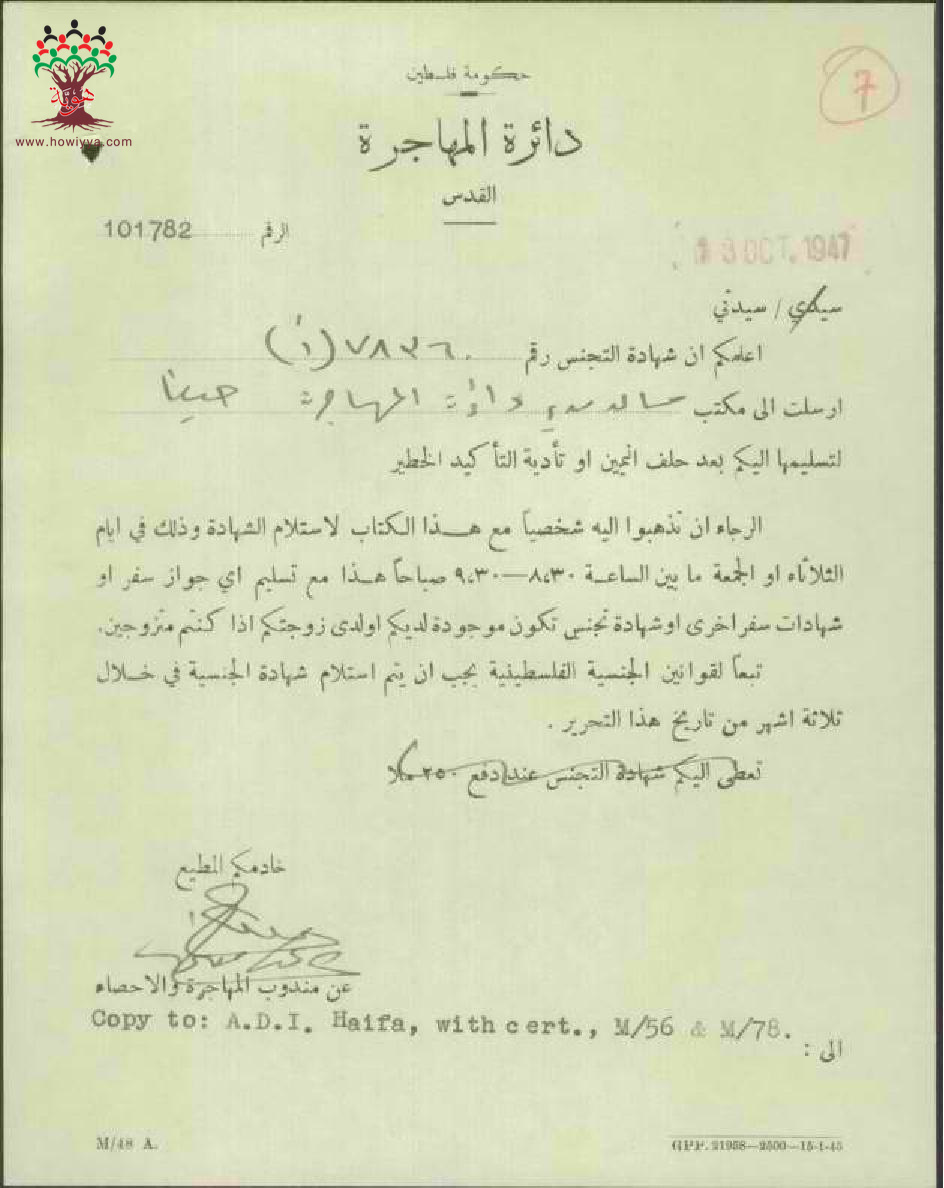 هوية
www.howiyya.com
حكومة فلسطين
7
دائرة المهاجرة
القدس
الرقم 101782
OCT. 1947
سيدي / سيدتي
اعلمكم ان شهادة التجنس رقم ٧٨٣٦٠ (أ)
ارسلت الى مكتب مساعد مدير دائرة المهاجرة حيفا
لتسليمها اليكم بعد حلف اليمين او تأدية التأكيد الخطير
الرجاء ان تذهبوا اليه شخصياً مع هذا الكتاب لاستلام الشهادة وذلك في ايام
الثلاثاء او الجمعة ما بين الساعة ٨،٣٠—٩،٣٠ صباحاً هذا مع تسليم اي جواز سفر او
شهادات سفر اخرى او شهادة تجنس تكون موجودة لديكم او لدى زوجتكم اذا كنتم متزوجين.
تبعاً لقوانين الجنسية الفلسطينية يجب ان يتم استلام شهادة الجنسية في خلال
ثلاثة اشهر من تاريخ هذا التحرير .
تعطى اليكم شهادة التجنس عند دفع ٢٥٠ ملا
خادمكم المطيع
عن مندوب المهاجرة والاحصاء
Copy to: A.D.I. Haifa, with cert., M/56 & M/78.
الى :
M/48 A.
GPP. 21958—2500—15-1-45